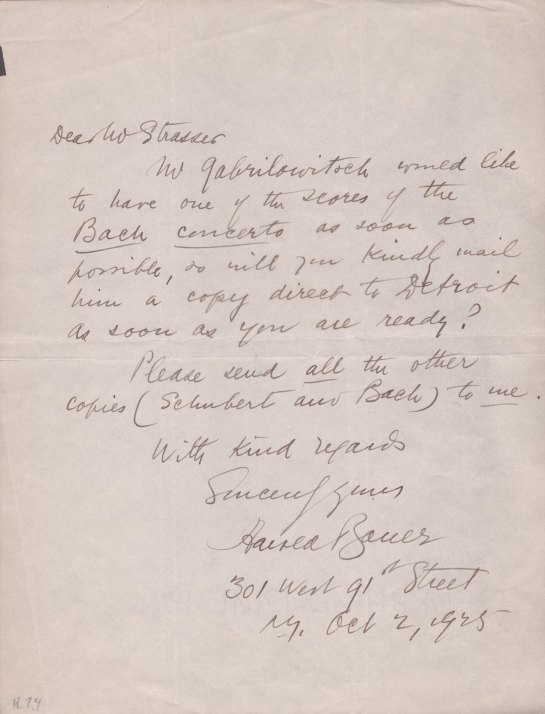 Dear Mr Strasser
Mr Gabrilowitsch would like
to have one of the scores of the
Bach concerto as soon as
possible, so will you kindly mail
him a copy direct to Detroit
as soon as you are ready?
Please send all the other
copies (Schubert and Bach) to me.
With kind regards
Sincerely yours
Harold Bauer
301 West 91st Street
N.Y. Oct 2, 1925